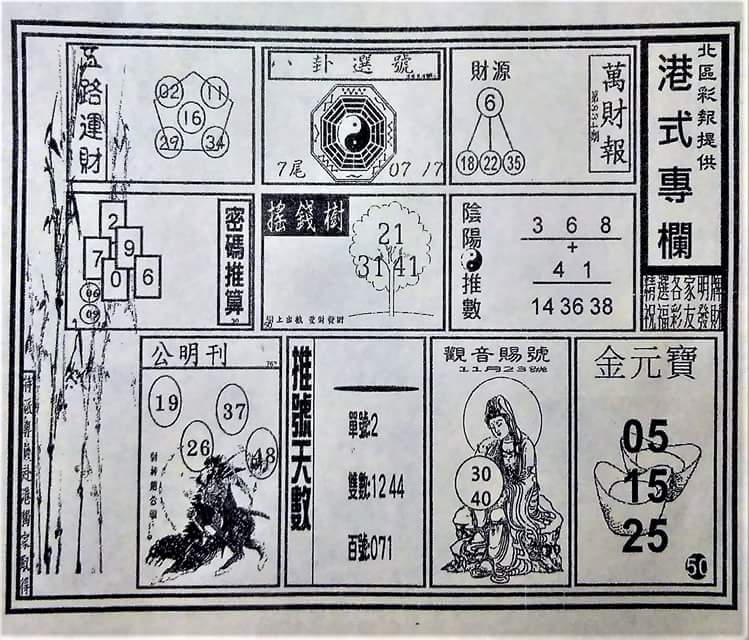 北區彩報提供
港式專欄
精選各家明牌
祝福彩友發財
萬財報
財源
6
18 22 35
八卦選號
7尾 07 17
五路運財
02 11
16
29 34
陰陽推數
3 6 8
+
4 1
14 36 38
搖錢樹
21
31 41
密碼推算
2
9
7
0 6
06
09
金元寶
05
15
25
50
觀音賜號
11月23號
30
40
推號天數
單號:2
雙數:12 44
百號:071
公明刊
19
37
26
48